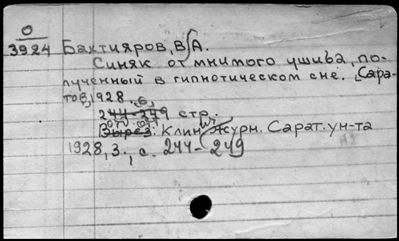 О
3924 Бахтияров, В. А.
Синяк от мнимого ушиба, по-
лученный в гипнотическом сне. [Сара-
тов, 1928.
244-249 стр.
Вырез. Клин. журн. Сарат. ун-та
1928, 3., с. 244-249